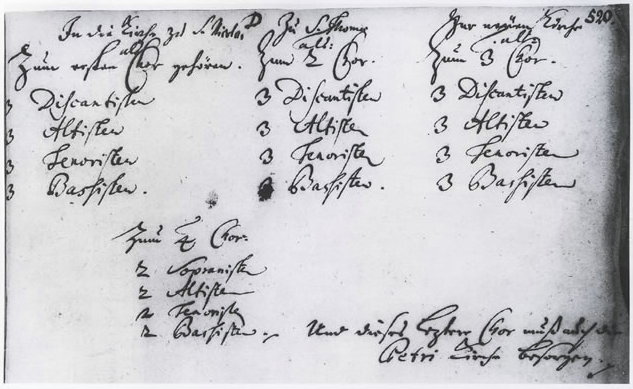 In die Kirche zu S. Nicolai
als
Zum ersten Chor gehören.
3 Discantisten
3 Altisten
3 Tenoristen
3 Bassisten.
Zu S. Thomae
als:
Zum 2 Chor.
3 Discantisten
3 Altisten
3 Tenoristen
3 Bassisten.
Zur neüen Kirche
als:
Zum 3 Chor.
3 Discantisten
3 Altisten
3 Tenoristen
3 Bassisten
520.
Zum 4 Chor.
2 Sopranisten
2 Altisten
2 Tenoristen
2 Bassisten.
Und dieses letztere Chor muß auch die
Petri Kirche besorgen.